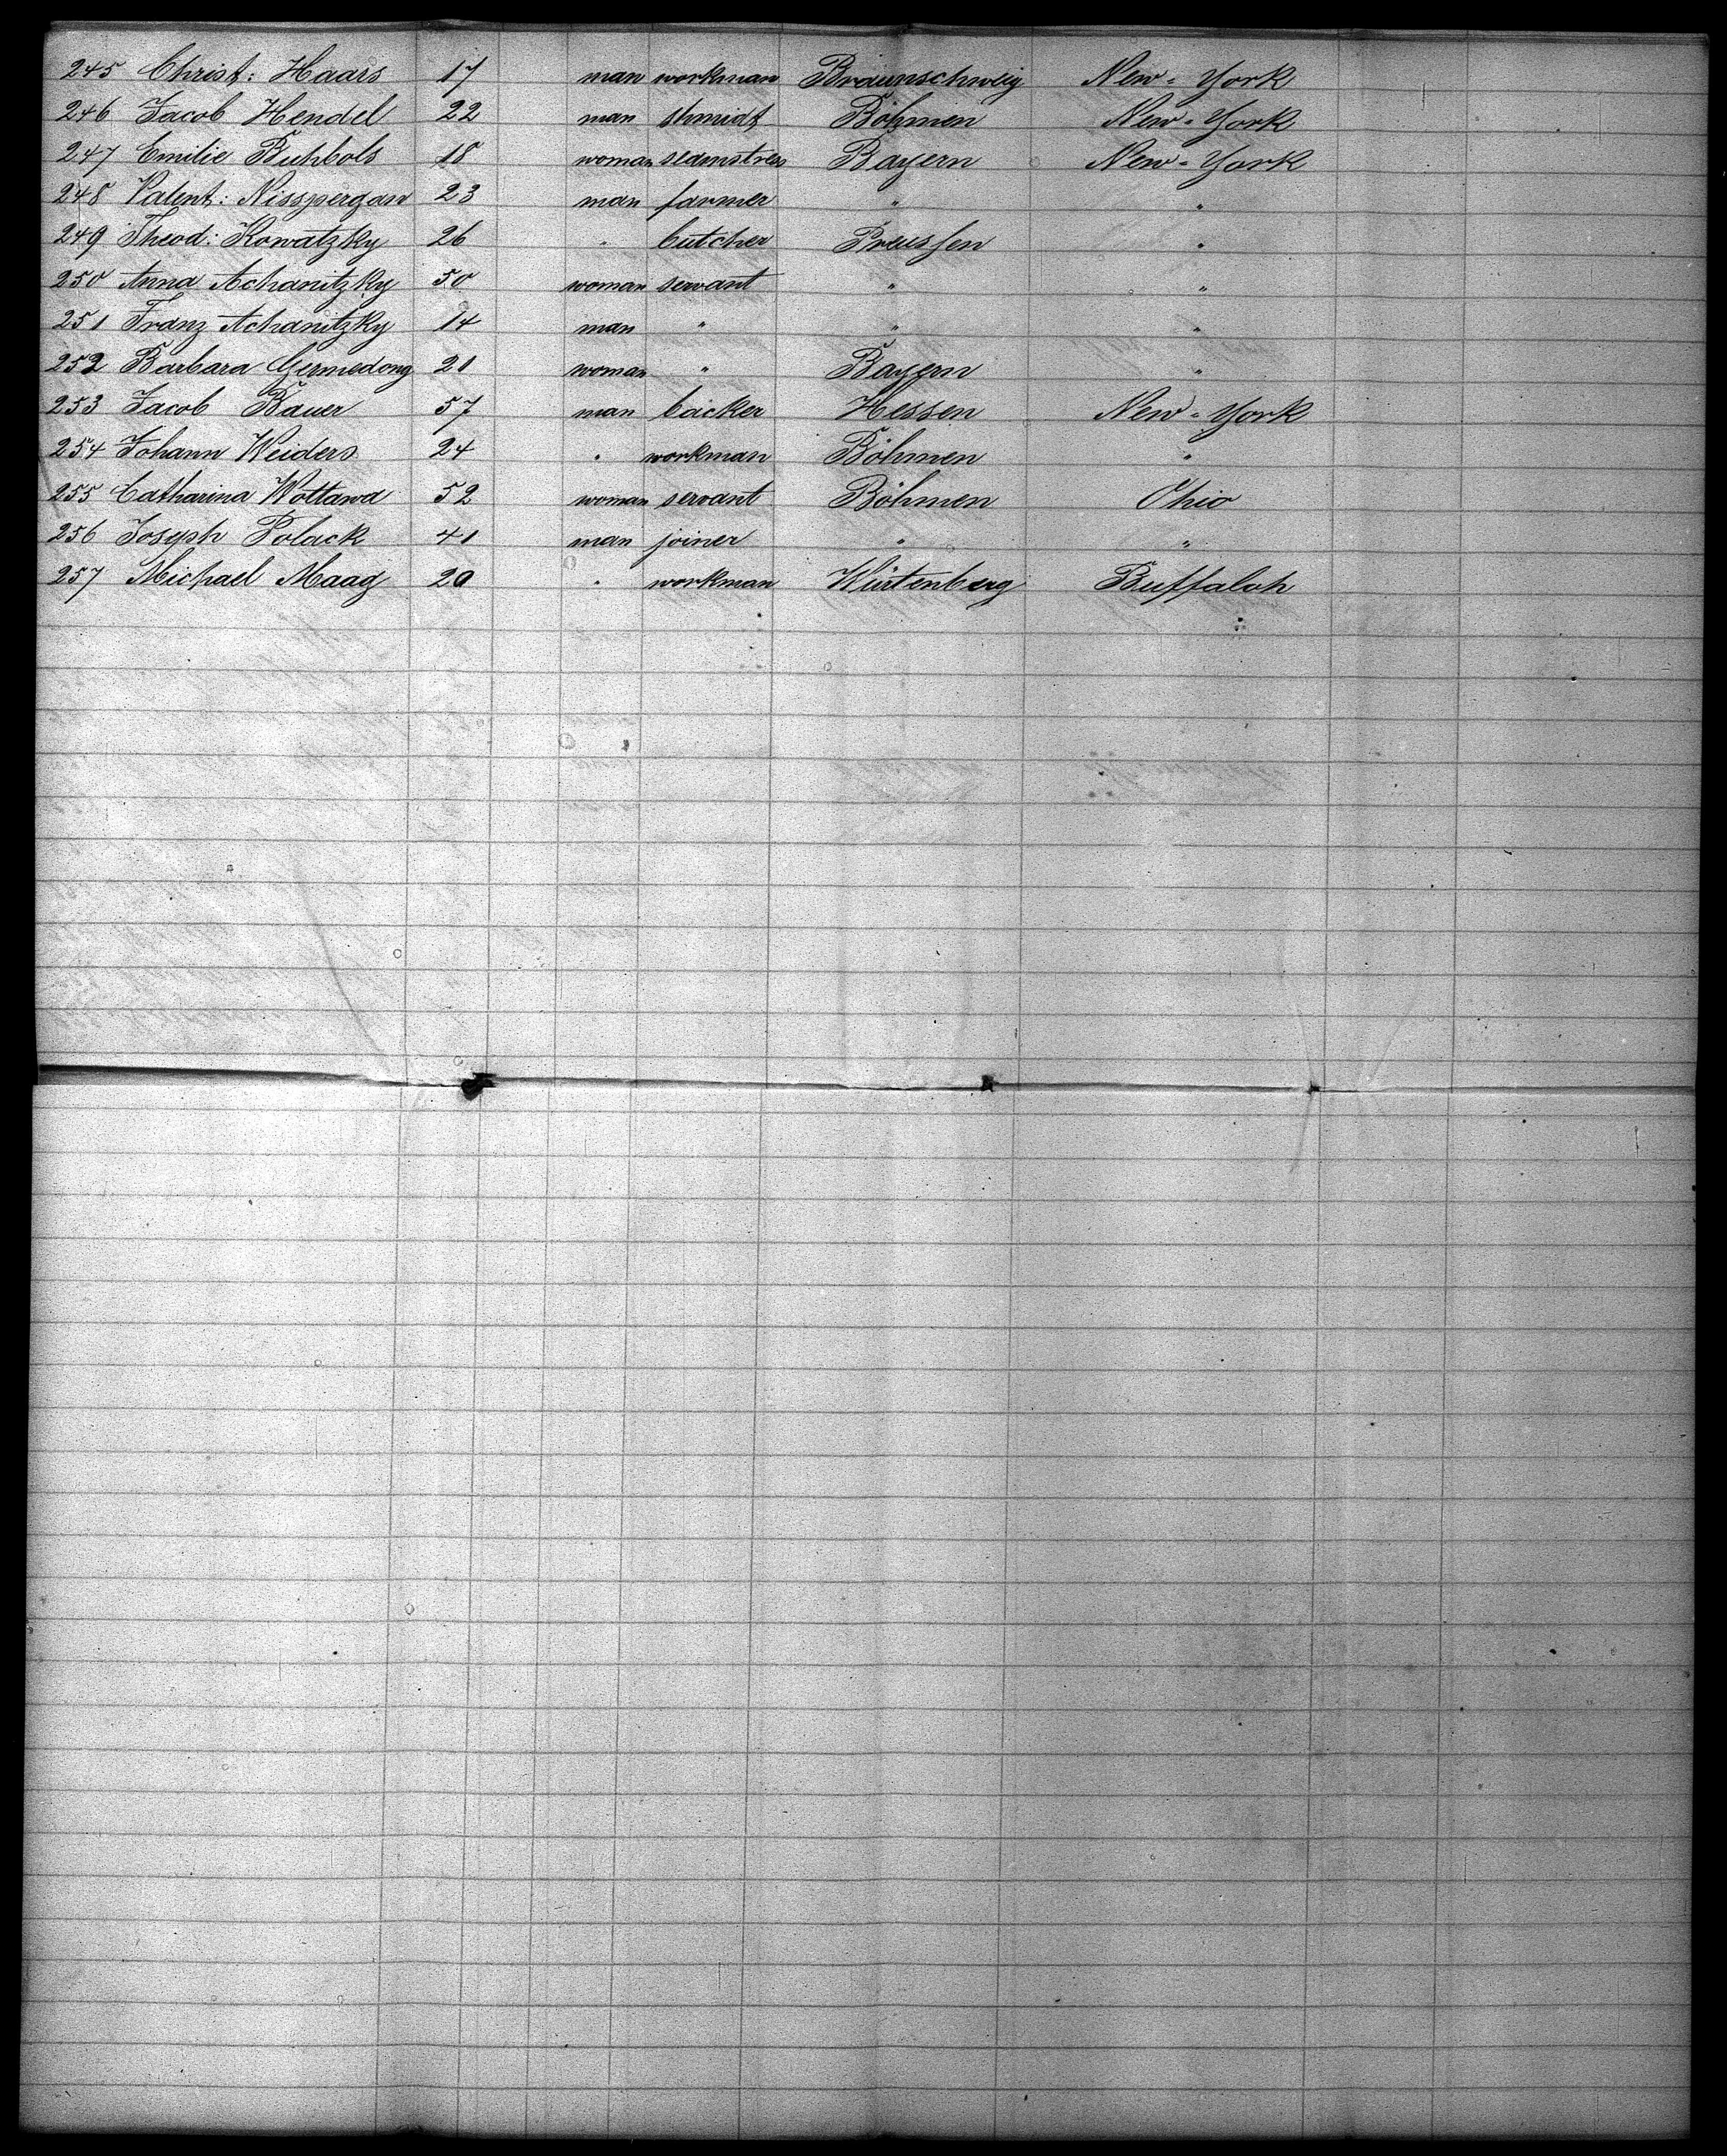 245 Christ: Haars 17 man workman Braunschweig New-York
246 Jacob Hendel 22 man shmidt Böhmen New-York
247 Emilie Buhbols 18 woman seamstress Bayern New-York
248 Valent: Nisspergan 23 man farmer " "
249 Theod: Kowatzky 26 " butcher Preussen "
250 Anna Achanitzky 50 woman servant " "
251 Franz Achanitzky 14 man " " "
252 Barbara Germedong 21 woman " Bayern "
253 Jacob Bauer 57 man backer Hessen New-York
254 Johann Weiders 24 " workman Böhmen "
255 Catharina Wottawa 52 woman servant Böhmen Ohio
256 Joseph Polack 41 man joiner " "
257 Michael Maag 20 " workman Würtenberg Buffaloh